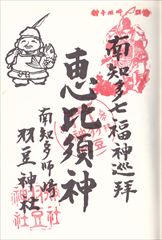 南知多七福神巡拝
恵比須神
南知多師崎
羽豆神社